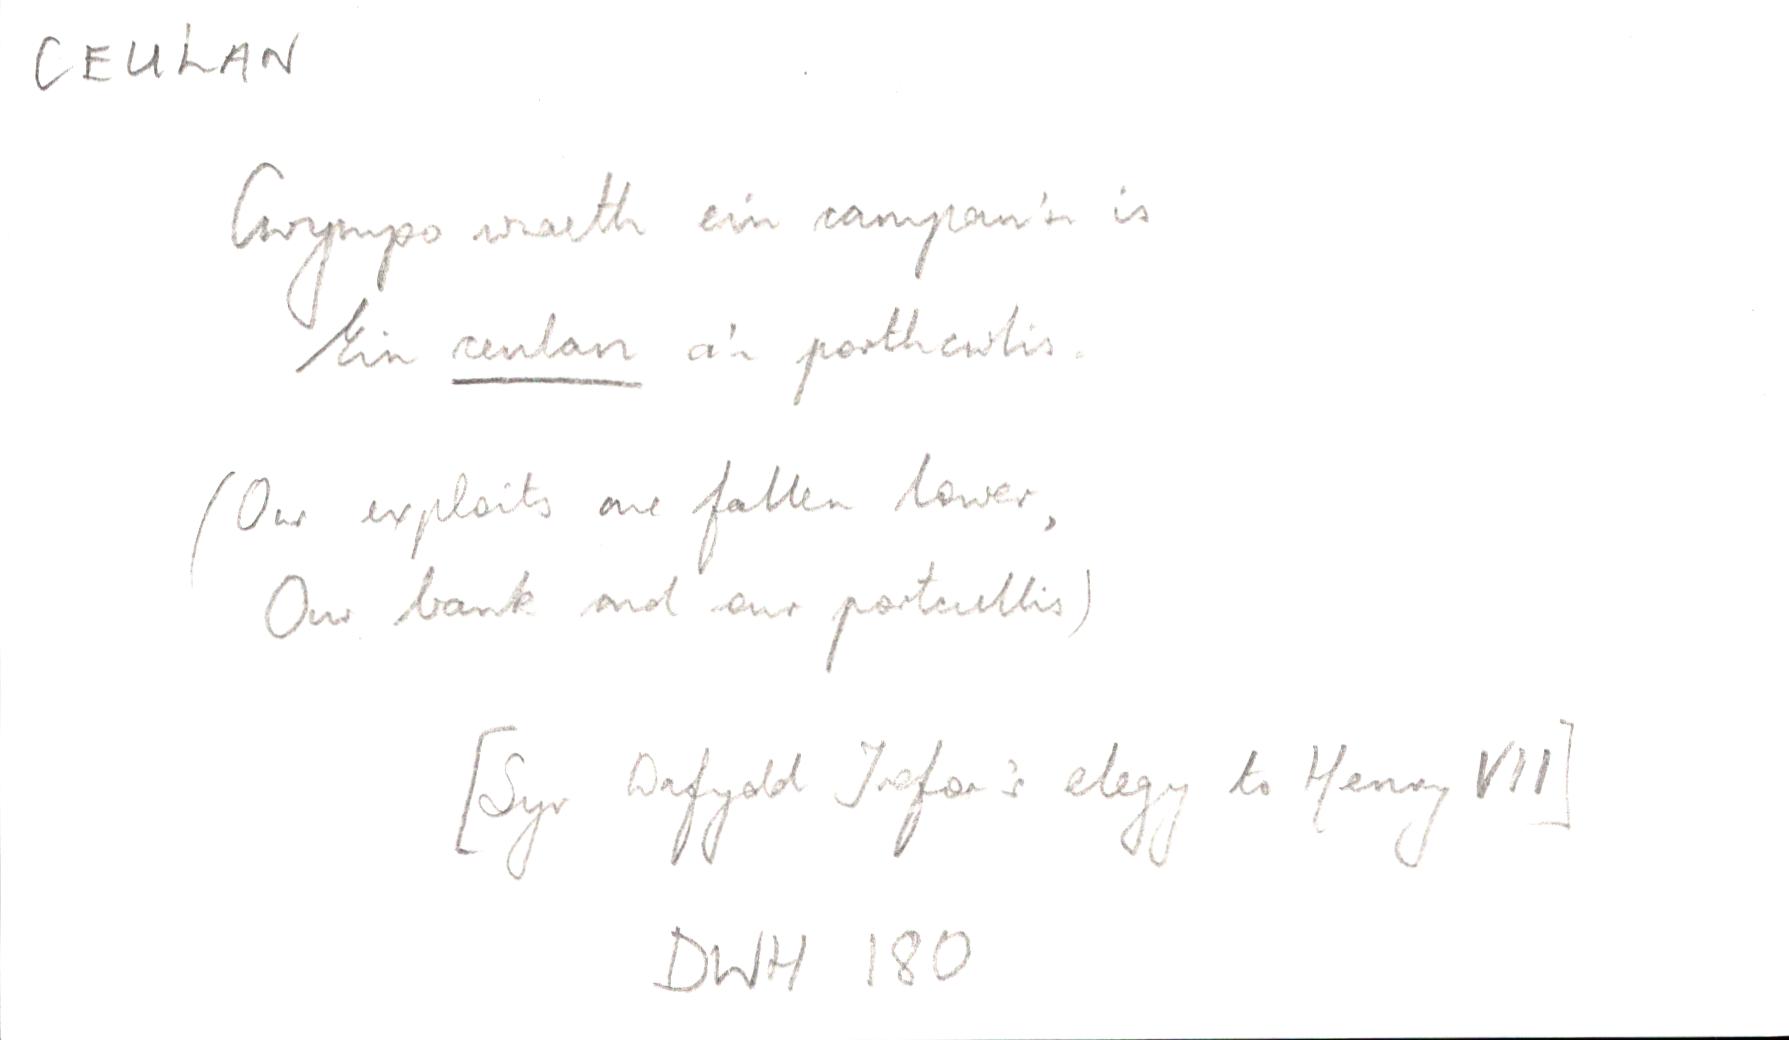 CEULAN
Cwympo wnaeth ein campau'n is
Ein ceulan a'n porthcwlis.
(Our exploits are fallen lower,
Our bank and our portcullis)
[Syr Dafydd Trefor's elegy to Henry VII]
DWH 180